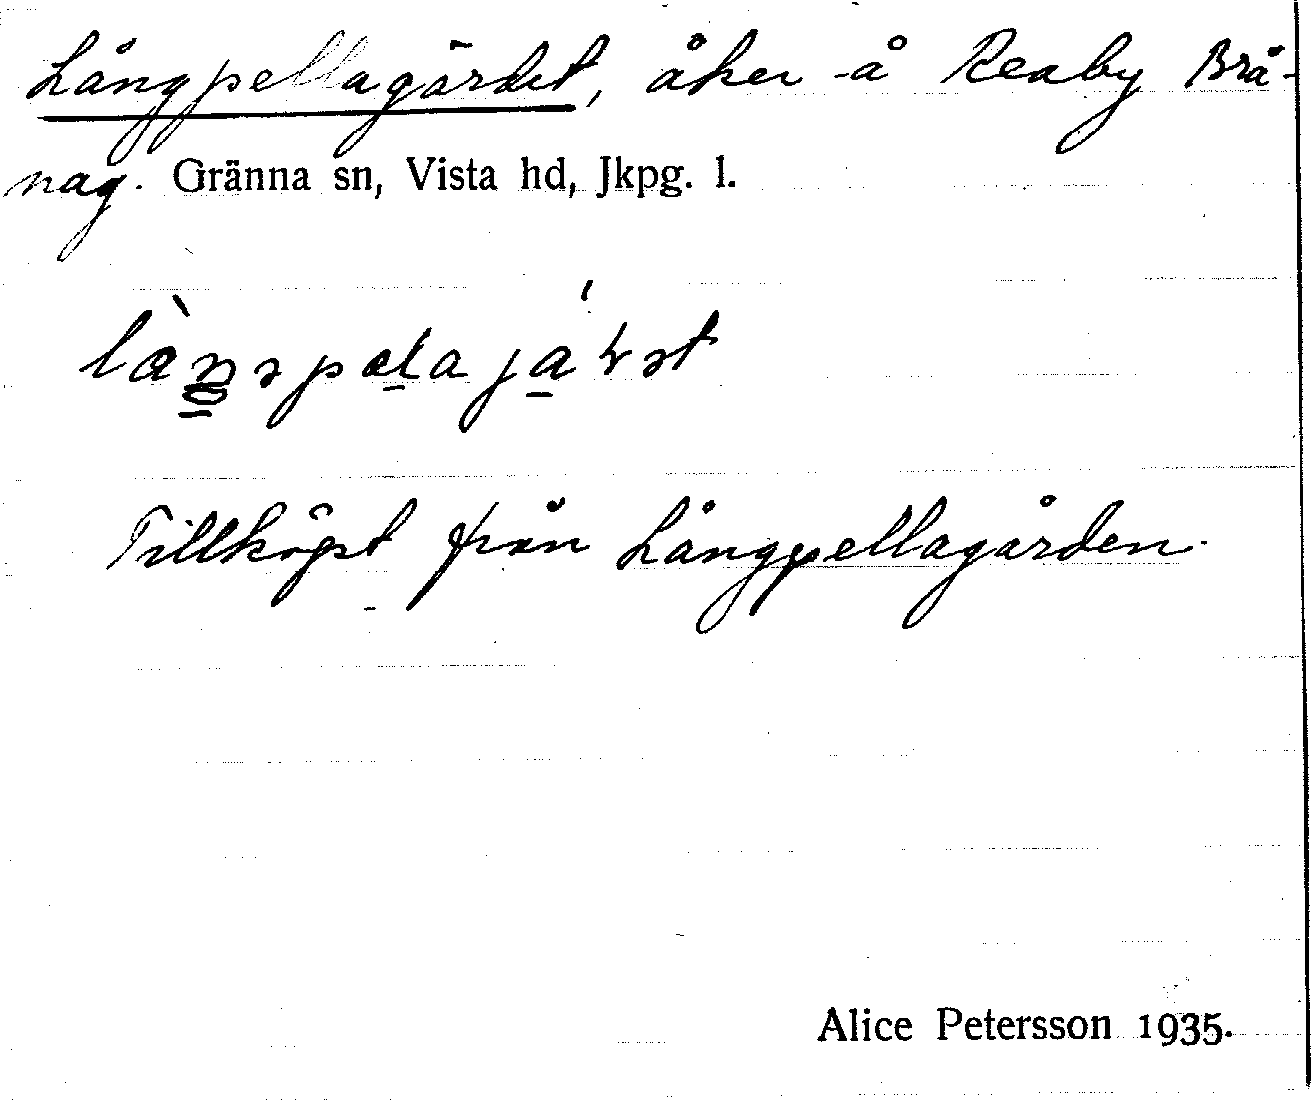 Långpellagärdet, åker å Reaby Brå-
nag. Gränna sn, Vista hd, Jkpg. l.
Tillköpt från Långpellagården.
Alice Petersson 1935.